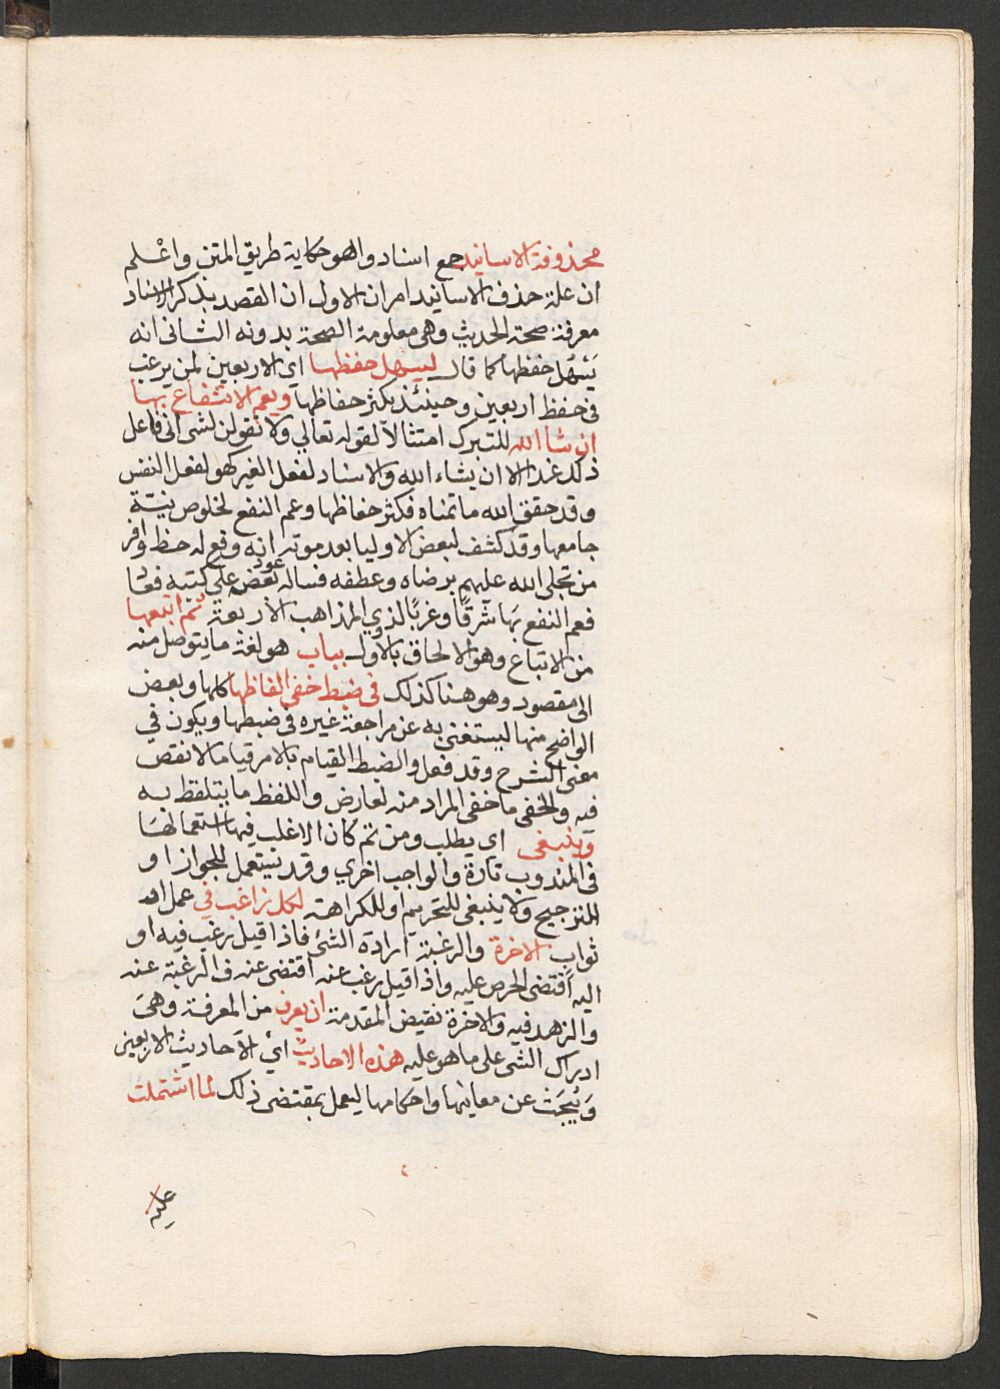 محذوفة الاسانيد جمع اسناد والهو حكاية طريق المتن واعْلم
ان علة حذف الاسانيد امران الاول ان القصد بذكر الاسناد
معرفة صحة الحديث وهى معلومة الصحة بدونه الثانى انه
يَسْهُل حفظها كما قال ليسهل حفظها اى الاربعين لمن يرغب
فى حفظ اربعين وحينئذ يكثر حفاظها ويعم الانتفاع بها
ان شا الله للتبرك امتثالاً لقوله تعالي ولا تقولن لشى انى فاعل
ذلك غدا الا ان يشاء الله والاسناد لفعل الغير كهو لفعل النفس
وقد حقق الله ما تمناه فكثر حفاظها وعم النفع لخلوص نيّة
جامعها وقد كشف لبعض الاوليا بعد موته انه وقع له حظ وافر
من تجلى الله عليهم برضاه وعطفه فساله بعض عود علي كتبه فعاد
فعم النفع بها شرقًا وغربًا لذوي المذاهب الاربعة ثم اتبعها
من الاتباع وهو الالحاق بالاول بباب هو لغة ما يتوصل منه
الى مقصود وهو هنا كذلك فى ضبط خفى الفاظها كلها وبعض
الواضح منها ليستغنى به عن مراجعة غيره فى ضبطها ويكون في
معنى الشرح وقد فعل والضبط القيام بالامر قياما لا نقصّ
فيه والخفى ما خفى المراد منه لعارض واللفظ ما يتلفظ به
وينبغى اى يطلب ومن ثم كان الاغلب فيها استعمالها
فى المندوب تارة والواجب اخري وقد تستعمل للجواز او
للترجيح ولا ينبغى للتحريم او للكراهة لكل راغب في عمل او
ثواب الاخرة والرغبة ارادة الشئ فاذا قيل رغب فيه او
اليه اقتضى الحرص عليه واذا قيل رغب عنه اقتضى عنه فالرغبة عنه
والزهد فيه والاخرة نقيض المقدمة ان يعرف من المعرفة وهى
ادراك الشى على ما هو عليه هذه الاحاديث اى الاحاديث الاربعين
وَيُبحَث عن معانيها واحكامها ليعمل بمقتضى ذلك لما اشتملت
عليه